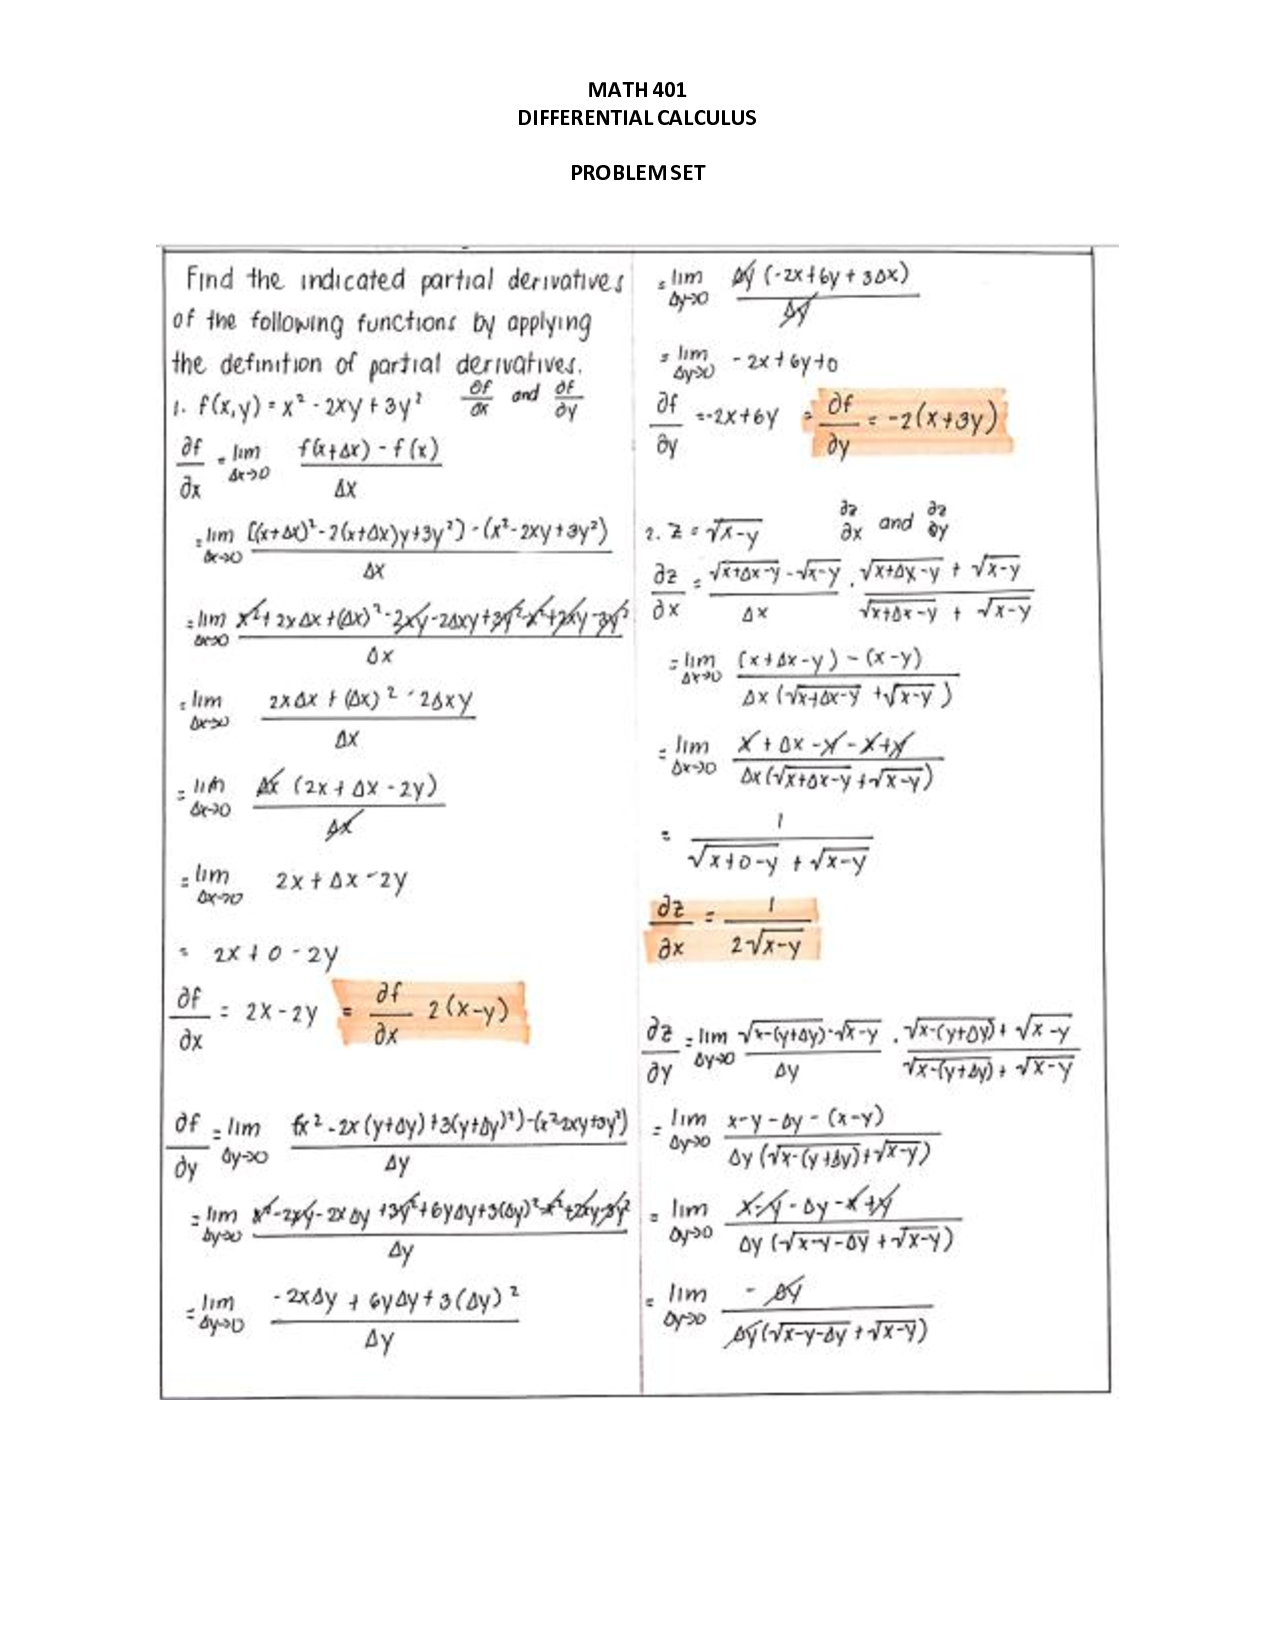 MATH 401
DIFFERENTIAL CALCULUS
PROBLEM SET
Find the indicated partial derivatives
of the following functions by applying
the definition of partial derivatives.
1. f(x,y) = x² - 2xy + 3y²   ∂f/∂x and ∂f/∂y
∂f/∂x = lim Δx→0 (f(x+Δx) - f(x))/Δx
= lim Δx→0 ([(x+Δx)² - 2(x+Δx)y + 3y²] - (x² - 2xy + 3y²))/Δx
= lim Δx→0 (x² + 2xΔx + (Δx)² - 2xy - 2Δxy + 3y² - x² + 2xy - 3y²)/Δx
= lim Δx→0 (2xΔx + (Δx)² - 2Δxy)/Δx
= lim Δx→0 (Δx (2x + Δx - 2y))/Δx
= lim Δx→0 2x + Δx - 2y
= 2x + 0 - 2y
∂f/∂x = 2x - 2y = ∂f/∂x 2(x-y)
∂f/∂y = lim Δy→0 ((x² - 2x(y+Δy) + 3(y+Δy)²) - (x² - 2xy + 3y²))/Δy
= lim Δy→0 (x² - 2xy - 2xΔy + 3y² + 6yΔy + 3(Δy)² - x² + 2xy - 3y²)/Δy
= lim Δy→0 (-2xΔy + 6yΔy + 3(Δy)²)/Δy
= lim Δy→0 (Δy (-2x + 6y + 3Δx))/Δy
= lim Δy→0 -2x + 6y + 0
∂f/∂y = -2x + 6y = ∂f/∂y = -2(x+3y)
2. z = √(x-y)   ∂z/∂x and ∂z/∂y
∂z/∂x = (√(x+Δx-y) - √(x-y))/Δx · (√(x+Δx-y) + √(x-y))/(√(x+Δx-y) + √(x-y))
= lim Δx→0 ((x+Δx-y) - (x-y))/(Δx (√(x+Δx-y) + √(x-y)))
= lim Δx→0 (x + Δx - y - x + y)/(Δx(√(x+Δx-y) + √(x-y)))
= 1/(√(x+0-y) + √(x-y))
∂z/∂x = 1/(2√(x-y))
∂z/∂y = lim Δy→0 (√(x-(y+Δy)) - √(x-y))/Δy · (√(x-(y+Δy)) + √(x-y))/(√(x-(y+Δy)) + √(x-y))
= lim Δy→0 (x-y-Δy-(x-y))/(Δy (√(x-(y+Δy)) + √(x-y)))
= lim Δy→0 (x-y-Δy-x+y)/(Δy (√(x-y-Δy) + √(x-y)))
= lim Δy→0 (-Δy)/(Δy(√(x-y-Δy) + √(x-y)))